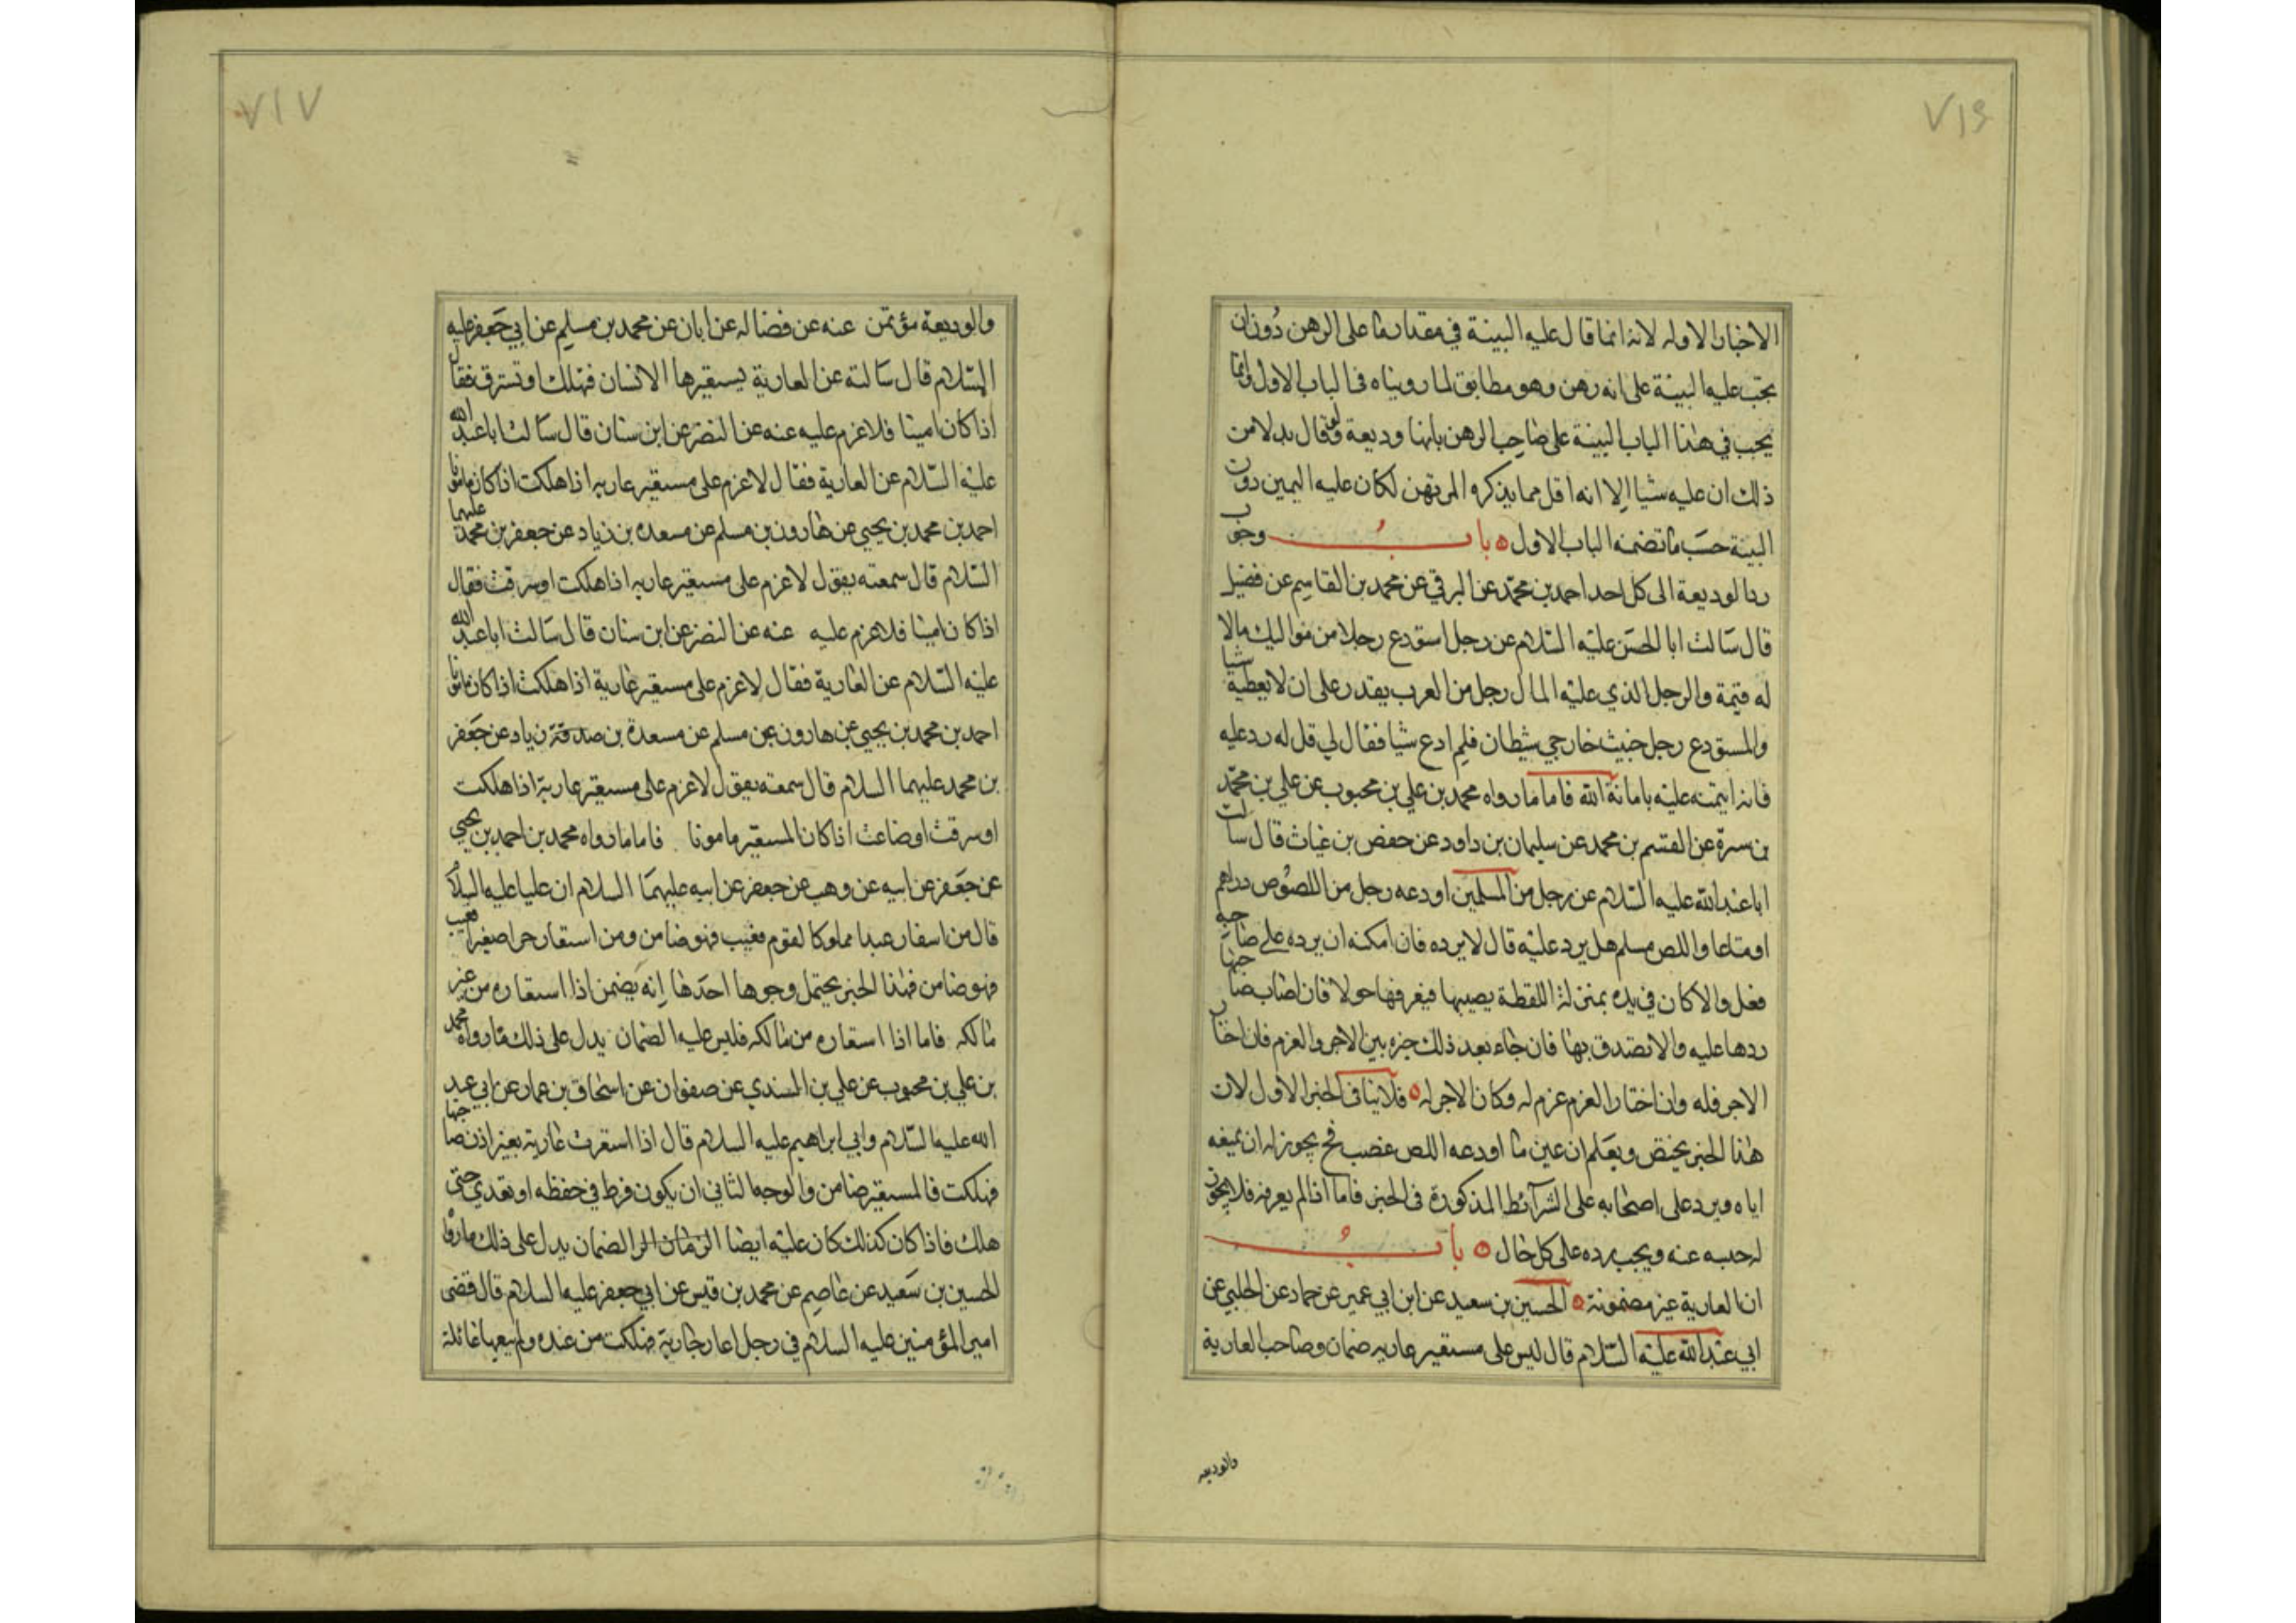 ٧١٦
الاخبار الاوله لانه انما قال عليه البينة في مقدار ما على الرهن دون ان
يجب عليه البينة على انه رهن وهو مطابق لما رويناه في الباب الاول وانما
يجب في هذا الباب البينة على صاحب الرهن بانها وديعة ولو قال بدلا من
ذلك ان عليه شيئا الا انه اقل مما يذكره المرتهن لكان عليه اليمين دون
البينة حسب ما تضمنه الباب الاول ٥ باب وجوب
رد الوديعة الى كل احد احمد بن محمد عن البرقي عن محمد بن القاسم عن فضيل
قال سالت ابا الحسن عليه السلام عن رجل استودع رجلا من مواليك مالا
له قيمة والرجل الذي عليه المال رجل من العرب يقدر على ان لا يعطيه شيا
والمستودع رجل خبيث خارجي شيطان فلم ادع شيا فقال لي قل له رد عليه
فانه ائتمنه عليه بامانة الله فاما ما رواه محمد بن علي بن محبوب عن علي بن محمد
بن سرة عن القسم بن محمد عن سليمان بن داود عن حفص بن غياث قال سالت
ابا عبد الله عليه السلام عن رجل من المسلمين اودعه رجل من اللصوص دراهم
او متاعا واللص مسلم هل يرد عليه قال لا يرده فان امكنه ان يرده على صاحبه
فعل والا كان في يده بمنزلة اللقطة يصيبها فيعرفها حولا فان اصاب صاحبها
ردها عليه والا تصدق بها فان جاء بعد ذلك خيره بين الاجر والغرم فان اختار
الاجر فله وان اختار الغرم غرم له وكان الاجر له ٥ فلا ينافى الخبر الاول لان
هذا الخبر يختص ويعلم ان عين ما اودعه اللص غصب فح يجوز له ان يمنعه
اياه ويرد على اصحابه على الشرآئط المذكورة فى الخبر فاما اذا لم يعرفه فلا يجوز
له حبسه عنه ويجب رده على كل حال ٥ باب
ان العارية غير مضمونة ٥ الحسين بن سعيد عن ابن ابي عمير عن حماد عن الحلبي عن
ابي عبد الله عليه السلام قال ليس على مستعير عارية ضمان وصاحب العارية
والوديعه
٧١٧
والوديعة مؤتمن عنه عن فضاله عن ابان عن محمد بن مسلم عن ابي جعفر عليه
السلام قال سالته عن العارية يستعيرها الانسان فتهلك او تسترق فقال
اذا كان امينا فلا غرم عليه عنه عن النضر عن ابن سنان قال سالت ابا عبد الله
عليه السلام عن العارية فقال لا غرم على مستعير عاريه اذا هلكت اذا كان مامونا
احمد بن محمد بن يحيى عن هارون بن مسلم عن مسعده بن زياد عن جعفر بن محمد عليهما
السلام قال سمعته يقول لا غرم على مستعير عاريه اذا هلكت او سرقت فقال
اذا كان امينا فلا غرم عليه عنه عن النضر عن ابن سنان قال سالت ابا عبد الله
عليه السلام عن العارية فقال لا غرم على مستعير عارية اذا هلكت اذا كان مامونا
احمد بن محمد بن يحيى عن هارون بن مسلم عن مسعدة بن صدقة زياد عن جعفر
بن محمد عليهما السلام قال سمعته يقول لا غرم على مستعير عارية اذا هلكت
او سرقت او ضاعت اذا كان المستعير مامونا فاما ما رواه محمد بن احمد بن يحيى
عن جعفر عن ابيه عن وهب عن جعفر عن ابيه عليهما السلام ان عليا عليه السلام
قال من استعار عبدا مملوكا لقوم فعيب فهو ضامن ومن استعار حرا صغيرا فعيب
فهو ضامن فهذا الخبر يحتمل وجوها احدها انه يضمن اذا استعاره من غير
مالكه فاما اذا استعاره من مالكه فليس عليه الضمان يدل على ذلك ما رواه محمد
بن علي بن محبوب عن علي بن السندي عن صفوان عن اسحاق بن عمار عن ابي عبد
الله عليه السلام وابي ابراهيم عليه السلام قال اذا استعرت عارية بغير اذن صاحبها
فهلكت فالمستعير ضامن والوجه الثاني ان يكون فرط في حفظه او تعدي حتى
هلك فاذا كان كذلك كان عليه ايضا الضمان يدل على ذلك ما رواه
الحسين بن سعيد عن عاصم عن محمد بن قيس عن ابي جعفر عليه السلام قال قضى
امير المؤمنين عليه السلام في رجل اعار جارية فهلكت من عنده ولم يبغها غائلة